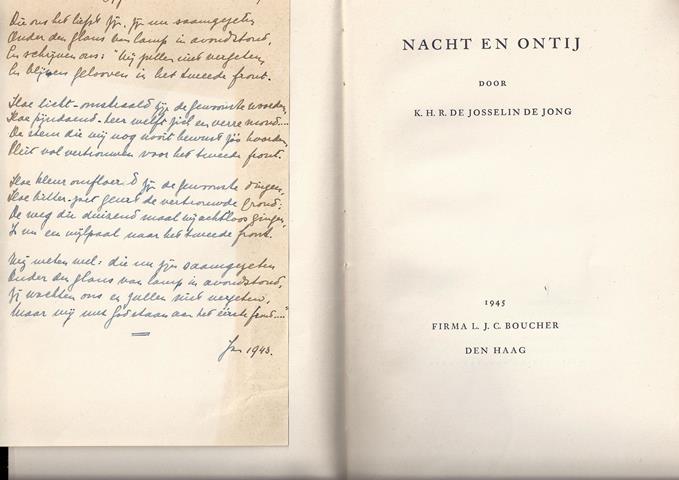 Die ons het liefst zijn, zijn nu saamgezeten
Onder den glans van lamp in avondstond,
En schrijven ons: "Wij zullen niet vergeten,
En blijven gelooven in het tweede front.
Hoe licht-omstraald zijn de gewoonste woorden,
Hoe pijndoend-teer welft ziel en verre mond....
De stem die wij nog nooit bewust zóó hoorden
vol vertrouwen voor het tweede front.
Hoe kleur omfloersd zijn de gewoonste dingen,
Hoe bitter-zoet geurt de vertrouwde grond:
De weg die duizend maal wij achtloos gingen,
Is nu een mijlpaal naar het tweede front.
Wij weten wel: die nu zijn saamgezeten
Onder den glans van lamp in avondstond,
Zij wachten ons en zullen niet vergeten,
Maar wij met God staan aan het éérste front...."
Jan 1943.
NACHT EN ONTIJ
DOOR
K. H. R. DE JOSSELIN DE JONG
1945
FIRMA L. J. C. BOUCHER
DEN HAAG